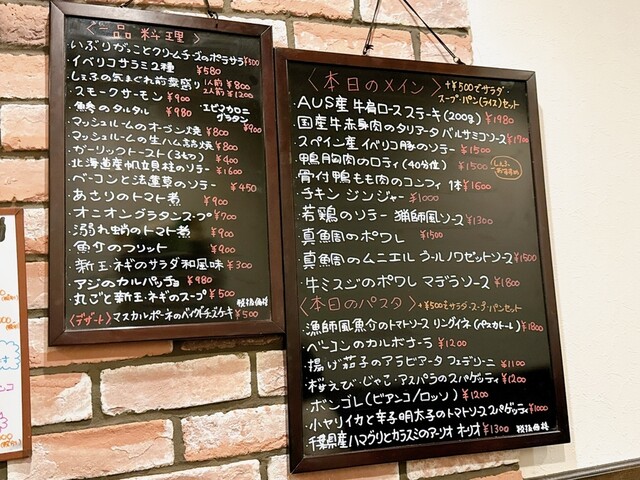 〈一品料理〉
・いぶりがっことクリームチーズのポテサラ ¥500
・イベリコサラミ2種 ¥580
・しぇふの気まぐれ前菜盛り 1人前 ¥800
2人前 ¥1200
・スモークサーモン ¥900
・魚のタルタル ¥980
エビマカロニ
グラタン
¥900
・マッシュルームのオーブン焼 ¥800
・マッシュルームの生ハム詰め焼 ¥800
・ガーリックトースト(3コ) ¥400
・北海道産帆立貝柱のソテー ¥1600
・ベーコンと法蓮草のソテー ¥450
・あさりのトマト煮 ¥900
・オニオングラタンスープ ¥700
・溺れ蛸のトマト煮 ¥900
・魚介のフリット ¥900
・新玉ネギのサラダ和風味 ¥300
・アジのカルパッチョ ¥980
・丸ごと新玉ネギのスープ ¥500
税抜価格
〈デザート〉マスカルポーネのベイクドチーズケーキ ¥500
〈本日のメイン〉 +¥500でサラダ・
スープ・パン(ライス)セット
・AUS産 牛肩ロースステーキ(200g) ¥1980
・国産牛赤身肉のタリアータ バルサミコソース ¥1700
・スペイン産イベリコ豚のソテー ¥1500
・鴨胸肉のロティ(40分位) ¥1500
しぇふ
おすすめ
・骨付鴨もも肉のコンフィ 1本 ¥1600
・チキン ジンジャー ¥1000
・若鶏のソテー 猟師風ソース ¥1300
・真鯛のポワレ ¥1500
・真鯛のムニエル ブールノワゼットソース ¥1500
・牛ミスジのポワレ マデラソース ¥1800
〈本日のパスタ〉 +¥500でサラダ・スープ・パンセット
・漁師風魚介のトマトソース リングイネ(ペスカトーレ) ¥1800
・ベーコンのカルボナーラ ¥1200
・揚げ茄子のアラビアータ フェデリーニ ¥1100
・桜えび・じゃこ・アスパラのスパゲッティ ¥1200
・ボンゴレ(ビアンコ/ロッソ) ¥1200
・小ヤリイカと辛子明太子のトマトソース スパゲッティ ¥1000
・千葉県産ハマグリとカラスミのアーリオオーリオ ¥1300
税抜価格